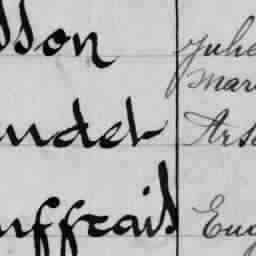 sson Jule
Mar
udel Arse
uffrais Eug